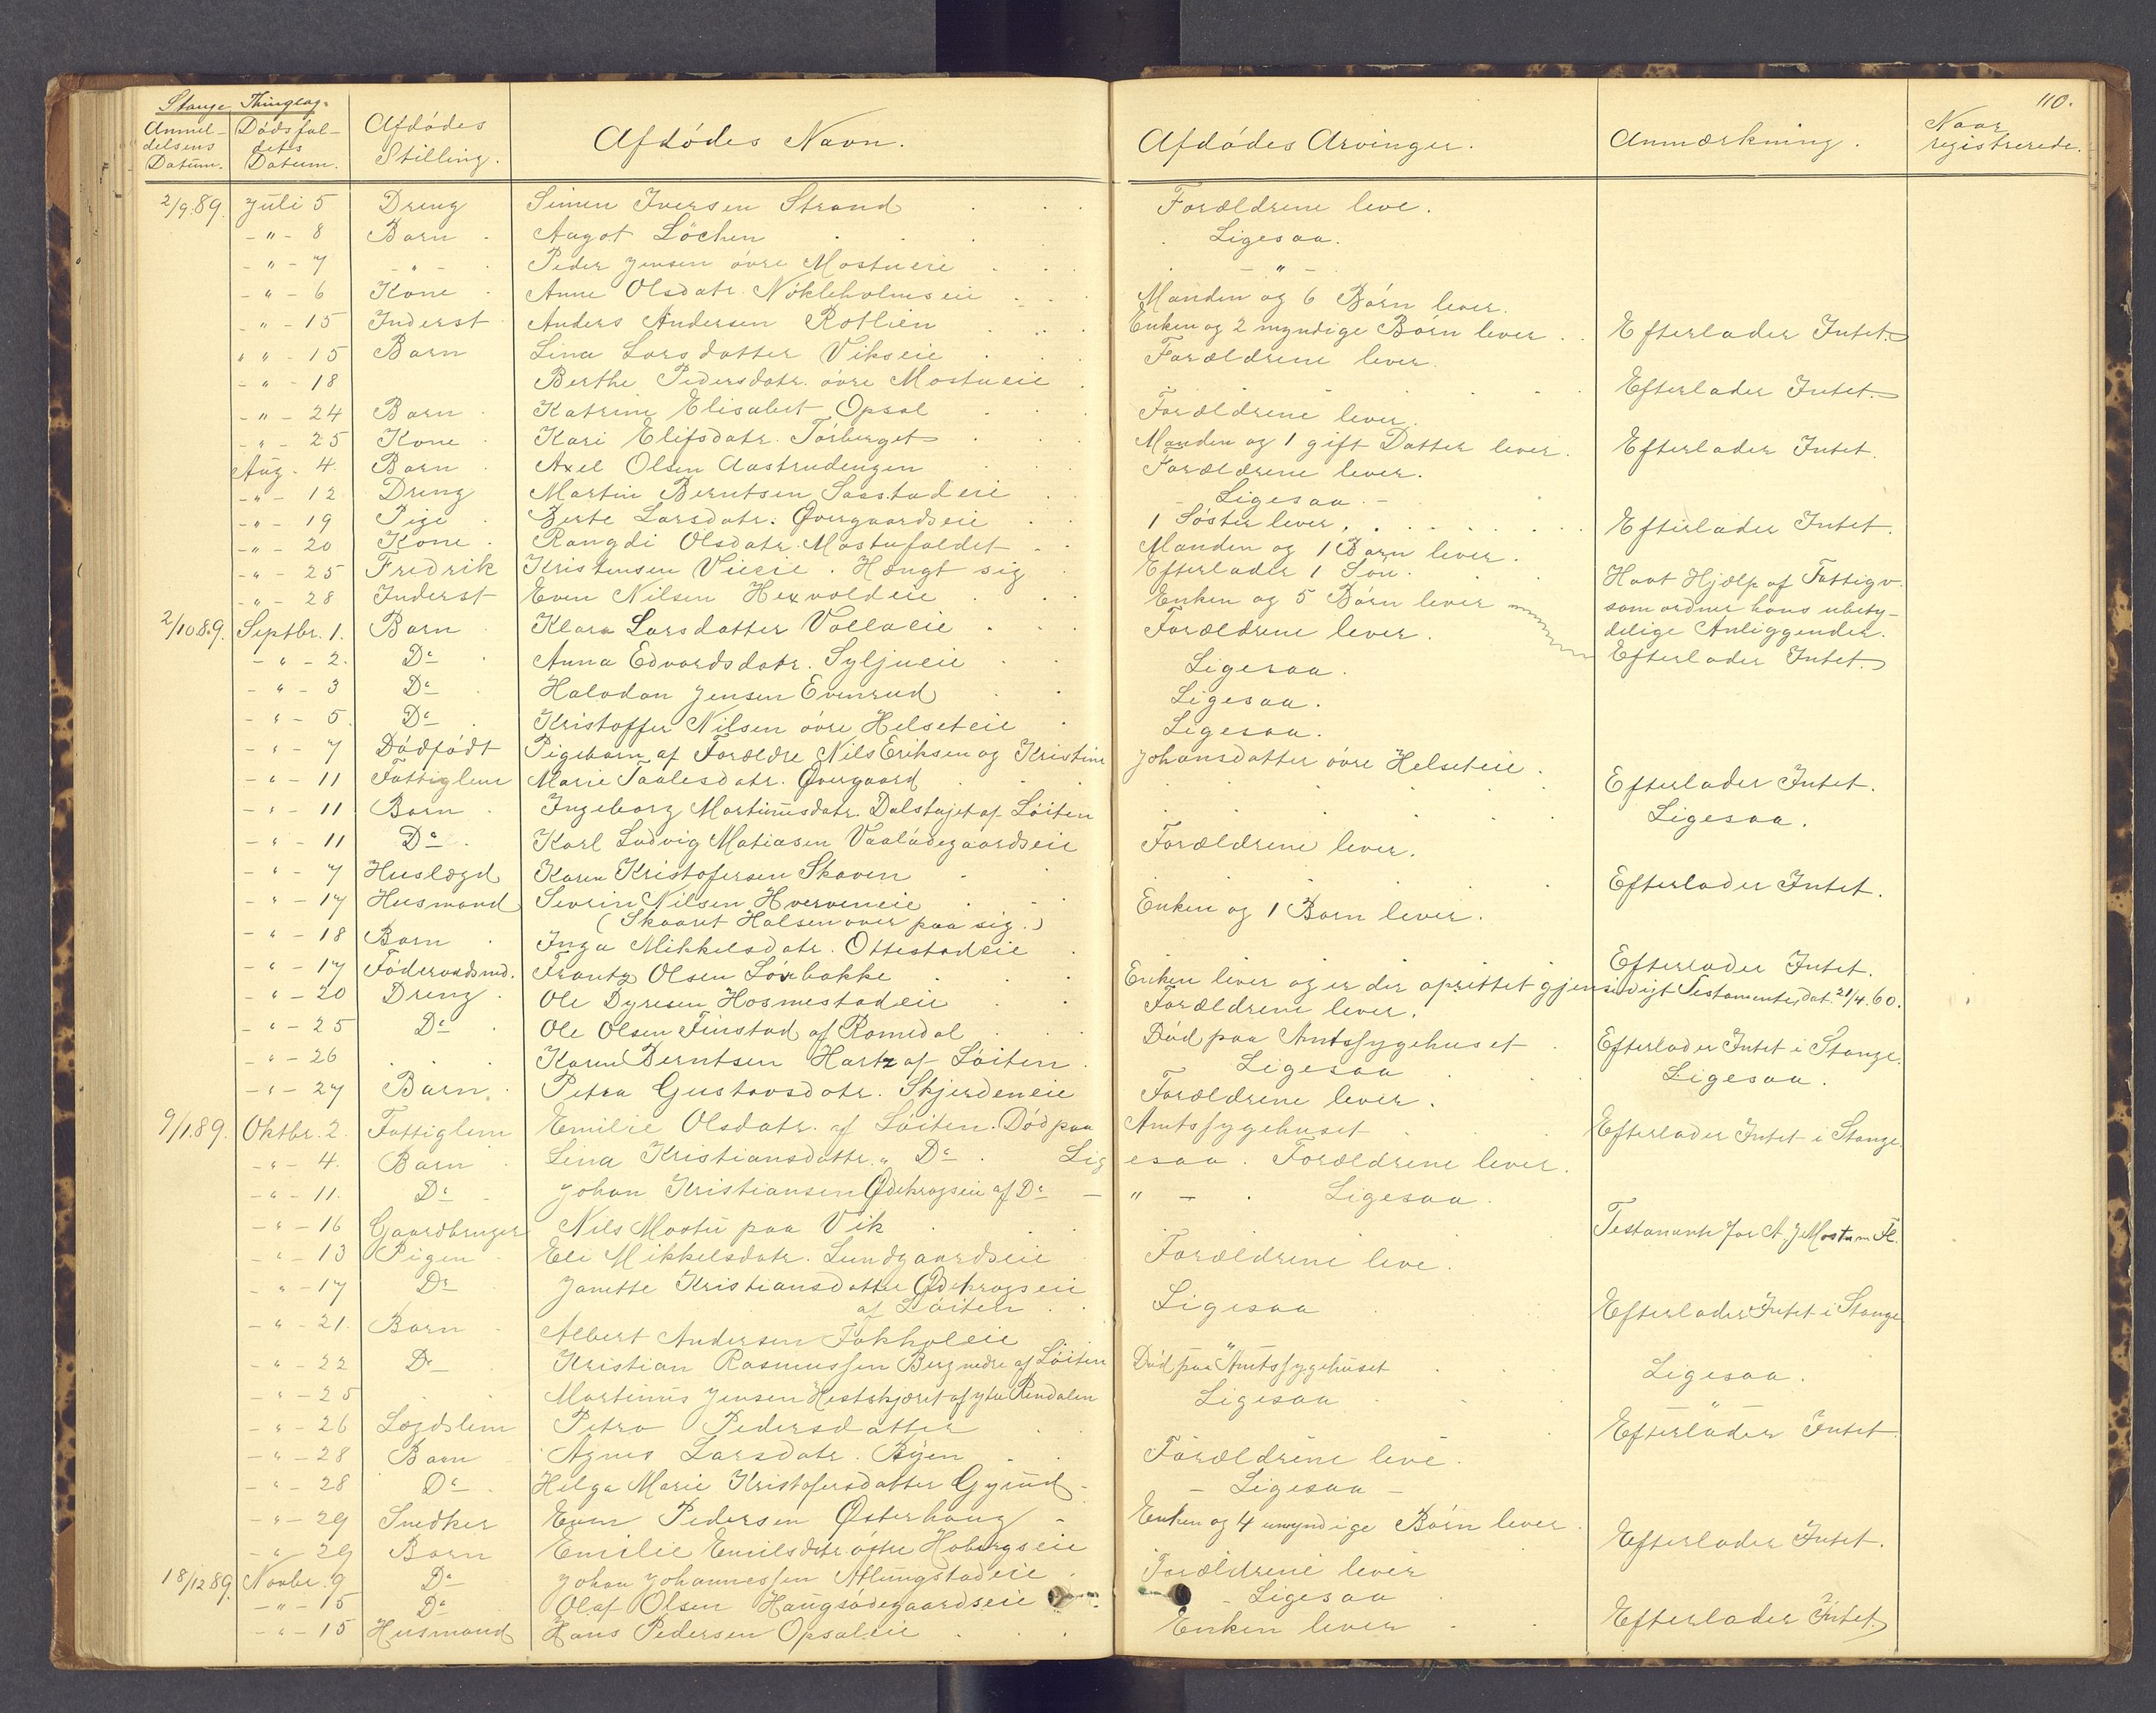 110.
Stange Thinglag.
Anmeldelsens Datum. Dødsfaldets Datum. Afdødes Stilling. Afdødes Navn. Afdødes Arvinger. Anmærkning. Naar registrerede.
2/9.89. Juli 5 Dreng Simen Iversen Strand Forældrene leve.
-"- 8 Barn Aagot Löchen Ligesaa.
-"- 7 -"- Peder Jensen övre Mostueie -"-
-"- 6 Kone Anne Olsdatr. Nökleholmseie Manden og 6 Börn lever.
-"- 15 Inderst Anders Andersen Rotlien Enken og 2 myndige Börn lever. Efterlader Intet.
" " - 15 Barn Lina Larsdatter Vikseie Forældrene lever.
-"- 18 Berthe Pedersdatr. övre Mostueie Efterlader Intet.
-"- 24 Barn Katrine Elisabet Opsal Forældrene lever.
-"- 25 Kone Kari Elifsdatr. Törberget Manden og 1 gift Datter lever. Efterlader Intet.
Aug. 4. Barn Axel Olsen Aastrudengen Forældrene lever.
-"- 12 Dreng Martin Berntsen Saastadeie - Ligesaa -
-"- 19 Pige Berte Larsdatr. Övergaardseie 1 Söster lever. Efterlader Intet.
-"- 20 Kone Rangdi Olsdatr. Mostufaldet Manden og 1 Barn lever.
-"- 25 Fredrik Kristensen Vieeie. Hængt sig Efterlader 1 Sön. Havt Hjælp af Fattigv.
-"- 28 Inderst Even Nilsen Hexvoldeie Enken og 5 Börn lever som ordner hans ubety-
2/10.89. Septbr. 1. Barn Klara Larsdatter Vollaeie Forældrene lever. delige Anliggender.
-"- 2. Do Anna Edvardsdatr. Syljueie Ligesaa. Efterlader Intet.
-"- 3 Do Halvdan Jensen Evenrud Ligesaa.
-"- 5. Do Kristoffer Nilsen övre Helseteie Ligesaa.
-"- 7 Dödfödt Pigebarn af Forældre Nils Eriksen og Kristine Johansdatter övre Helseteie.
-"- 11 Fattiglem Marie Taalesdatr. Övergaard Efterlader Intet.
-"- 11 Barn Ingeborg Martinusdatr. Dalstøjet af Löiten Ligesaa.
-"- 11 Do Karl Ludvig Matiasen Vaalödegaardseie Forældrene lever.
-"- 7 Huslægd Karen Kristofersen Skaven Efterlader Intet.
-"- 17 Husmand Sevrin Nilsen Hverveneie Enken og 1 Barn lever.
(Skaaret Halsen over paa sig.)
-"- 18 Barn Inga Mikkelsdatr. Ottestadeie Efterlader Intet.
-"- 17 Föderaadsmd. Frantz Olsen Löxbakke Enken lever og er der oprettet gjensidigt Testamente, dat. 21/4.60.
-"- 20 Dreng Ole Dyresen Hosmestadeie Forældrene lever.
-"- 25 Do Ole Olsen Finstad af Romedal Död paa Amtssygehuset Efterlader Intet i Stange.
-"- 26 Karen Berntsen Hartz af Löiten Ligesaa Ligesaa.
-"- 27 Barn Petra Gustavsdatr. Skjerdeneie Forældrene lever.
9/1.89. Oktbr. 2. Fattiglem Emilie Olsdatr. af Löiten. Död paa Amtssygehuset Efterlader Intet i Stange.
-"- 4. Barn Lina Kristiansdattr. " Do. Ligesaa. Forældrene lever.
-"- 11. Do Johan Kristiansen Ödekrogseie af Do - " - Ligesaa.
-"- 16 Gaardbruger Nils Mostu paa Vik Testamente for A. J. Mostu m. Fl.
-"- 13 Pigen Eli Mikkelsdatr. Lundgaardseie Forældrene leve.
-"- 17 Do Janette Kristiansdatter Ödekrogseie
af Löiten Ligesaa Efterlader Intet i Stange
-"- 21. Barn Albert Andersen Fokholeie "
-"- 22 Do Kristian Rasmussen Berg nedre af Löiten Död paa Amtssygehuset Ligesaa.
-"- 25 Martinus Jensen Hestskjæret af ytre Rendalen Ligesaa -"-
-"- 26 Lægdslem Petra Pedersdatter Efterlader Intet
-"- 28 Barn Agnes Larsdatr. Byen Forældrene leve.
-"- 28 Do Helga Marie Kristofersdatter Gyrud - Ligesaa -
-"- 29 Snedker Even Pedersen Österhaug Enken og 4 umyndige Börn lever. Efterlader Intet.
-"- 29 Barn Emilie Emilsdatr. östre Hobergseie Forældrene lever
18/12 89. Novbr. 9 Do Johan Johannessen Atlungstadeie - Ligesaa
-"- 15 Do Olaf Olsen Haugsödegaardseie
-"- 15 Husmand Hans Pedersen Opsaleie Enken lever Efterlader Intet.